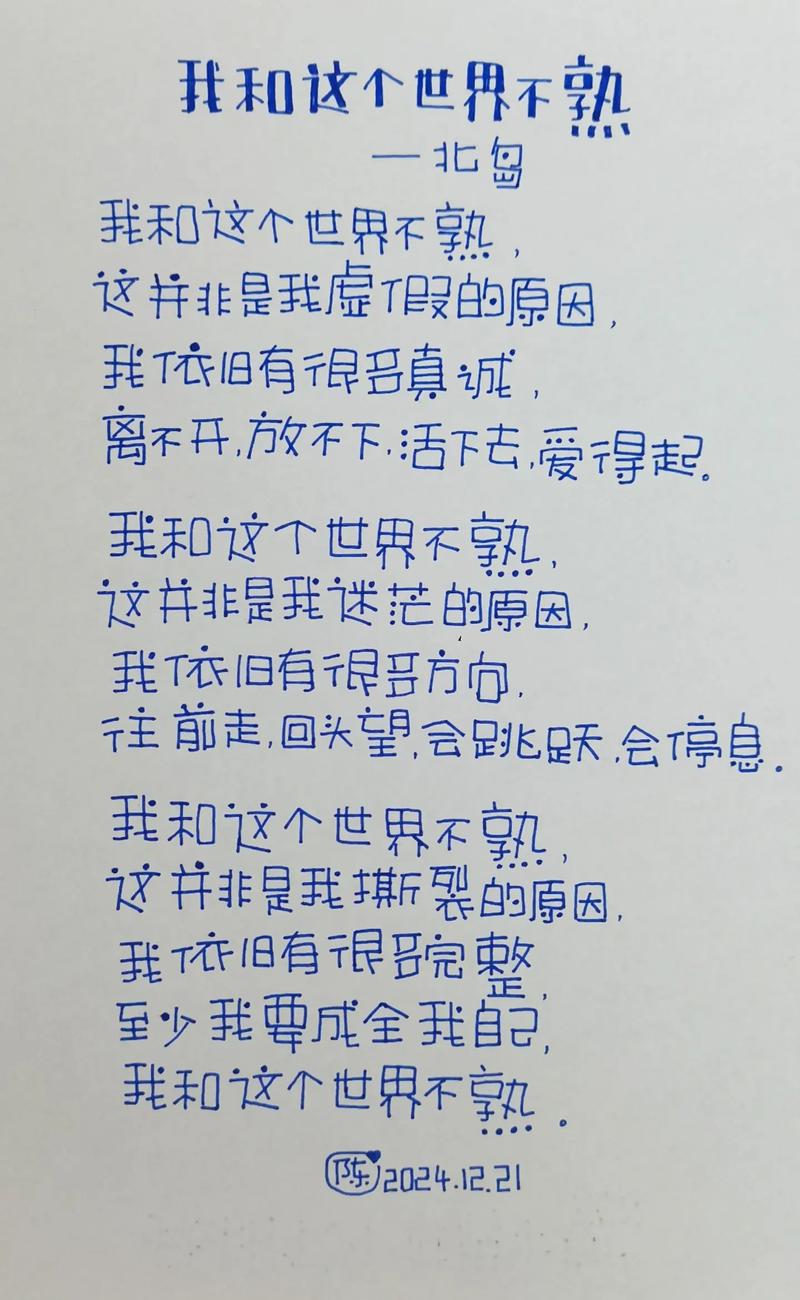 我和这个世界不熟
—北岛
我和这个世界不熟，
这并非是我虚假的原因，
我依旧有很多真诚，
离不开，放不下，活下去，爱得起。
我和这个世界不熟，
这并非是我迷茫的原因，
我依旧有很多方向，
往前走，回头望，会跳跃，会停息。
我和这个世界不熟，
这并非是我撕裂的原因，
我依旧有很多完整，
至少我要成全我自己，
我和这个世界不熟。
陈 2024.12.21